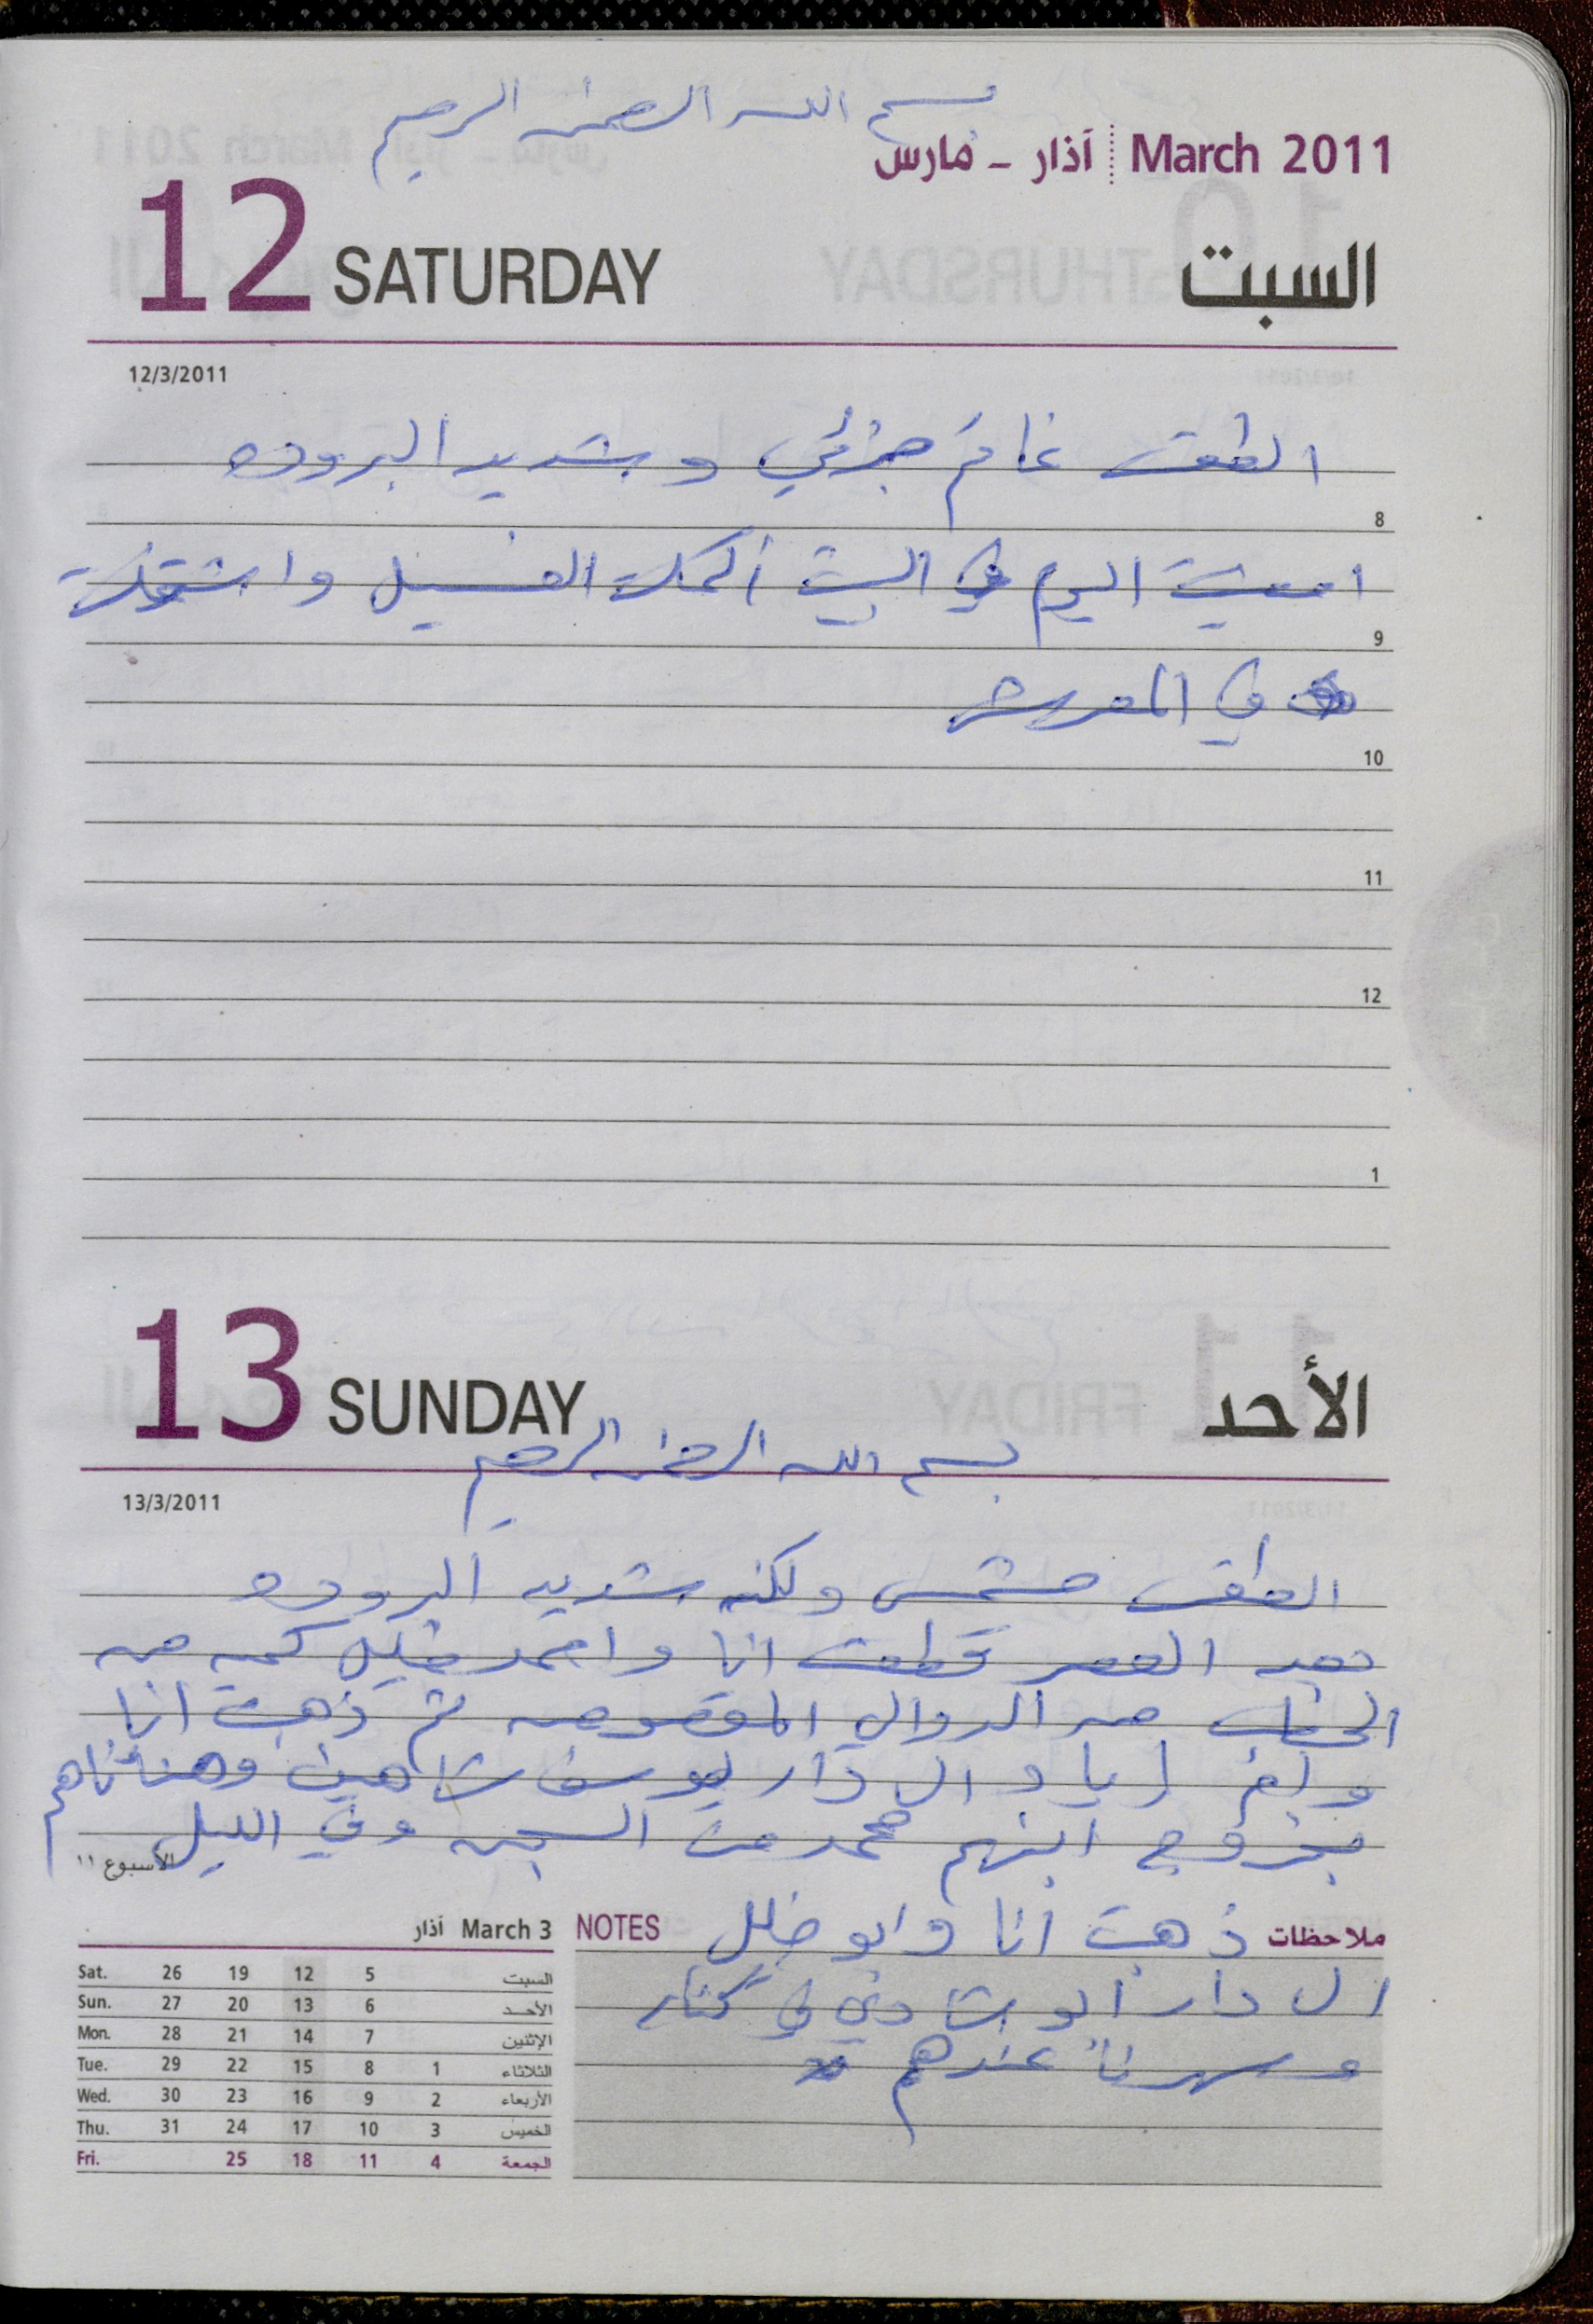 بسم الله الرحمن الرحيم
March 2011 آذار - مارس
12 SATURDAY السبت
12/3/2011
الطقس غائم جزئي وشديد البروده
8
امضيت اليوم في البيت أكملت الغسيل واشتغلت
9
في المعرش
10
11
12
1
13 SUNDAY الأحد
بسم الله الرحمن الرحيم
13/3/2011
الطقس مشمس ولكنه شديد البروده
بعد العصر قطعت انا وامحمد خليل كميه من
الحطب من الدوالي المقصوصه ثم ذهبت انا
وام اياد الى دار يوسف شاهين وهنأناهم
بخروج ابنهم محمد من السجن وفي الليل
الأسبوع ١١
ملاحظات NOTES
ذهبت انا وابو خليل
الى دار ابو شادي في كفار
وسهرنا عندهم
March 3 آذار
Sat. 26 19 12 5 السبت
Sun. 27 20 13 6 الأحد
Mon. 28 21 14 7 الإثنين
Tue. 29 22 15 8 1 الثلاثاء
Wed. 30 23 16 9 2 الأربعاء
Thu. 31 24 17 10 3 الخميس
Fri. 25 18 11 4 الجمعة